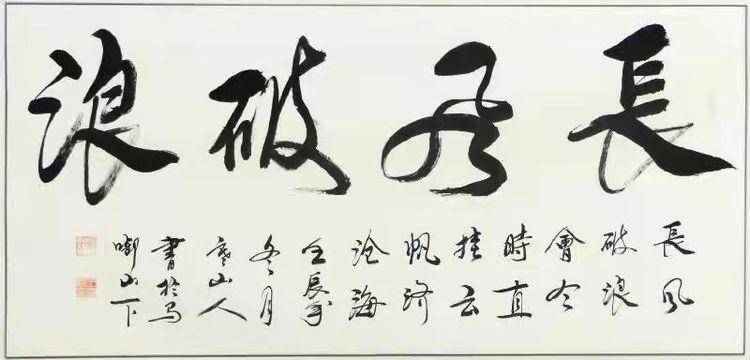 長風破浪
長風
破浪
會有
時直
挂云
帆济
沧海
壬辰年
冬月
山人
書於马
山下